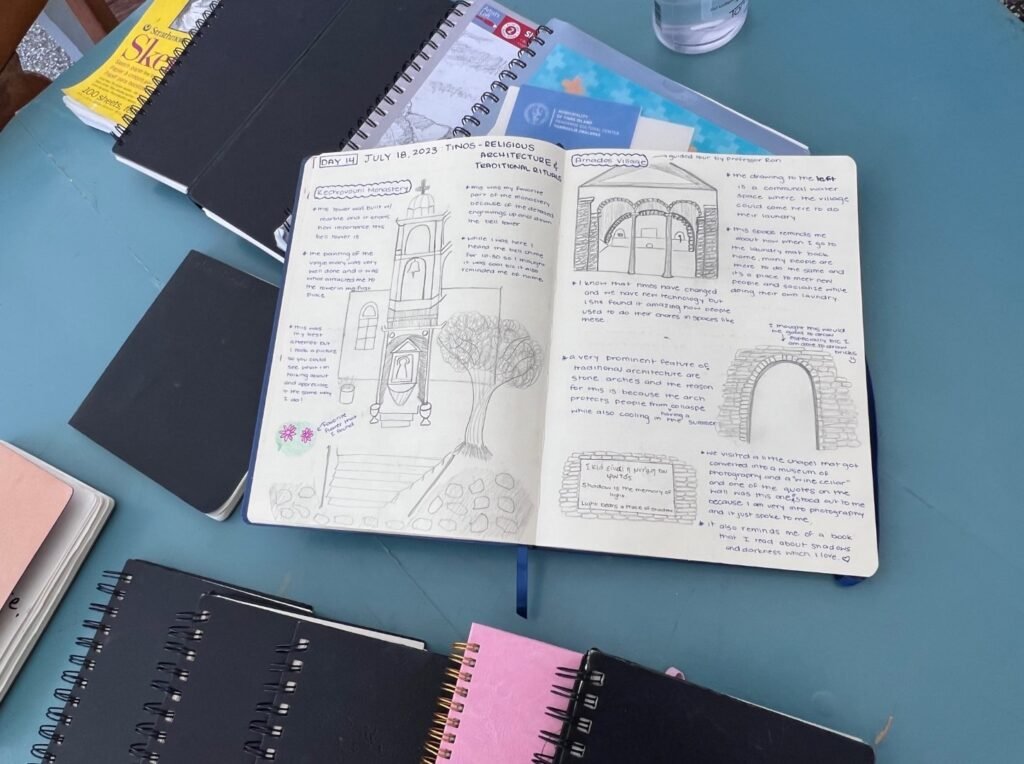 Strathmore
Ske
100 sheets,
MUNICIPALITY
OF TINOS ISLAND
DAY 14 JULY 18, 2023 TINOS - RELIGIOUS
ARCHITECTURE &
TRADITIONAL RITUALS
Monastery
• this tower was built w/
marble and it shows
how importance this
bell tower is
• the painting of the
virgin mary was very
well done and it was
what attracted me to
the tower in the first
place
• this was
my best
attempt but
I took a picture
so you could
see what I'm
talking about
and appreciate
the same way
I do!
favorite
flower that
I found
• this was my favorite
part of the monastery
because of the detailed
engravings up and down
the bell tower
• while I was here I
heard the bell chime
for 10:30 so I thought
it was cool bc it also
reminded me of home
Arnados Village → guided tour by Professor Ron
• the drawing to the left
is a communal water
space where the village
could come here to do
their laundry
• this space reminds me
about how when I go to
the laundry mat back
home, many people are
there to do the same and
it's a place to meet new
people and socialize while
doing their own laundry
• I know that times have changed
and we have new technology but
I still found it amazing how people
used to do their chores in spaces like
these
I thought this would
be good to draw
especially bc I
am able to draw
bricks
• a very prominent feature of
traditional architecture are
stone arches and the reason
for this is because the arch
protects people from collaspe
while also having a cooling in the summer
φωτός
Shadow is the memory of
light.
Light bears a trace of shadow
• we visited a little chapel that got
converted into a museum of
photography and a "wine cellar"
and one of the quotes on the
wall was this one & stood out to me
because I am very into photography
and it just spoke to me.
• it also reminds me of a book
that I read about shadows
and darkness which I love. ♡